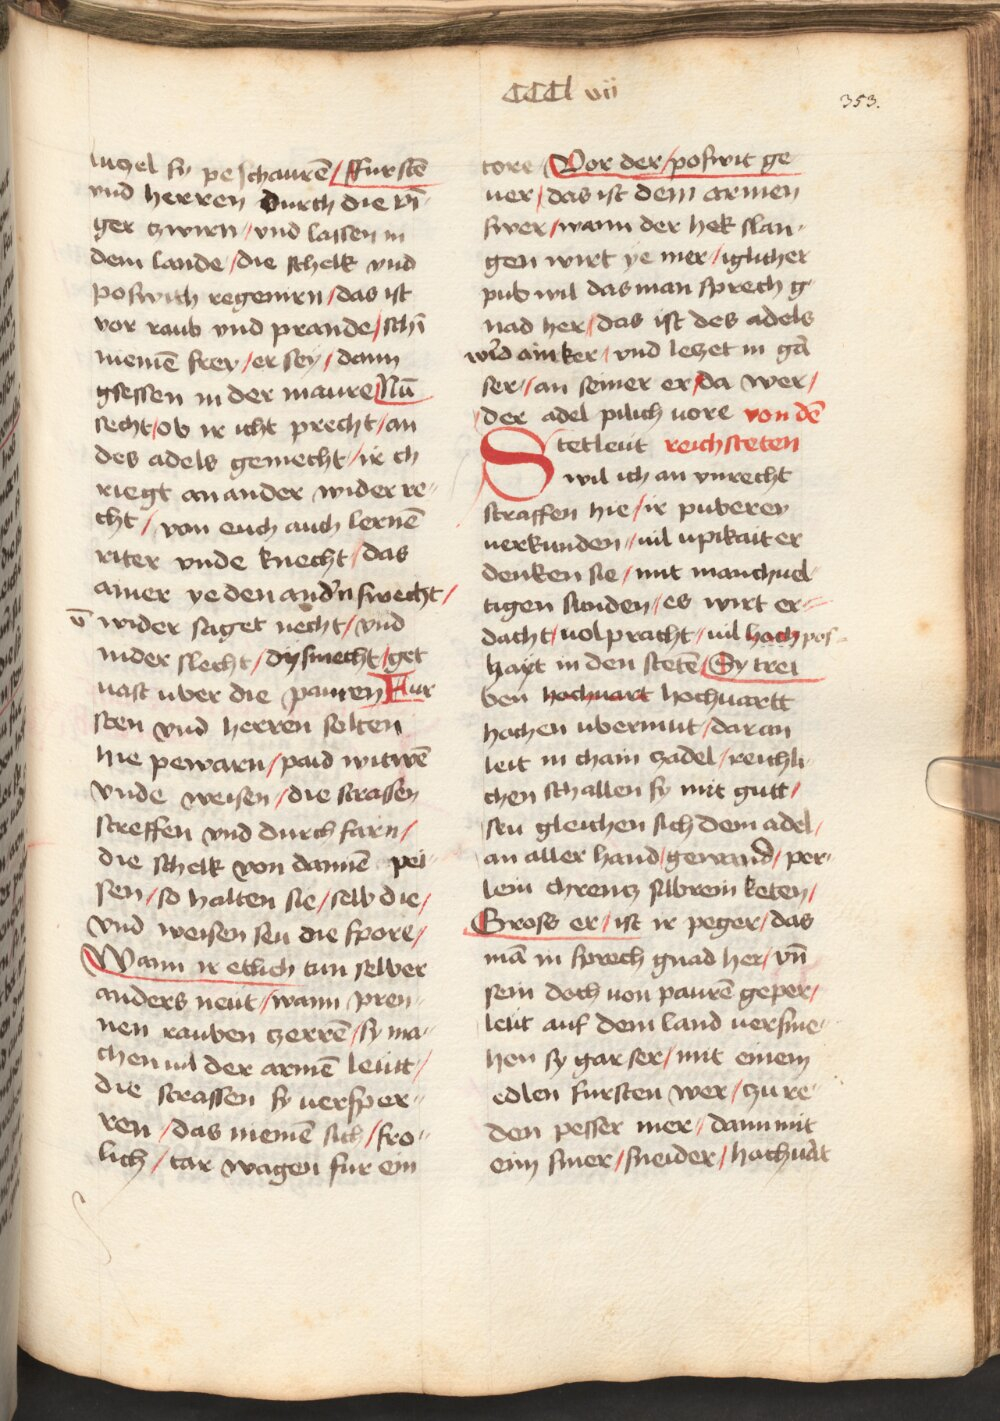 CCCl vii
353.
luczel sy peschaurē / ffurstē
vnd herren Durch die vī
ger zwirn / vnd lassen in
dem lande / die schelk vnd
poswich regenirn / das ist
vor raub vnd prande / schī
niemē frey / er sey / dann
gsessen in der maure Nū
secht / ob ir icht precht / an
des adels gemecht / ir ch
riegt an ander wider re
cht / von euch auch lernē
riter vnde knecht / das
ainer ye den andn swecht /
v̄ wider saget necht / vnd
nider slecht / dysmecht / get
vast vber die pauren Fur
sten vnd herren selten
hie pewarn / paid witwē
vnde weisen / die strassen
streffen vnd durch farn /
die schelk von dannē pei
sen / so halten sie / selb die /
vnd weisen seu die spore /
Wann ir etlich tun selber
anders neut / wann pren
nen rauben zerrē / sy ma
chen vil der armē leutt /
die strassen sy versper
ren / das niemē sich / fro
lich / tar wagen fur ein
tore / Vor der / poswit ge
uer / das ist dem armen
swer / wann der hek slan
gen wirt ye mer / iglicher
pub wil das man sprech g
nad her / das ist des adels
ainker / vnd leczet in gā
ser / an seiner er / da wer /
der adel pilich vore von dē
Stetleut reichsteten
wil ich an vnrecht
straffen hie / ir puberey
verkunden / vil vpikait er
denken sie / mit manchuel
tigen sunden / es wirt er
dacht / vol pracht / vil hach pos
hayt in den stetē / Sy trei
ben hochuart hochuartt
hochen vbermut / dar an
leit in chain zadel / reichli
chen schallen sy mit gutt /
seu gleichen sich dem adel /
an aller hand / gewand / per
lein chrencz silbrein keten /
Gross er / ist ir peger / das
mā in sprech gnad her / vn̄
sein doch von paurē geper /
leut auf dem land versme
hen sy gar ser / mit einem
edlen fursten wer / zu re
den pesser mer / dann mit
eim smer / sneider / hochuart